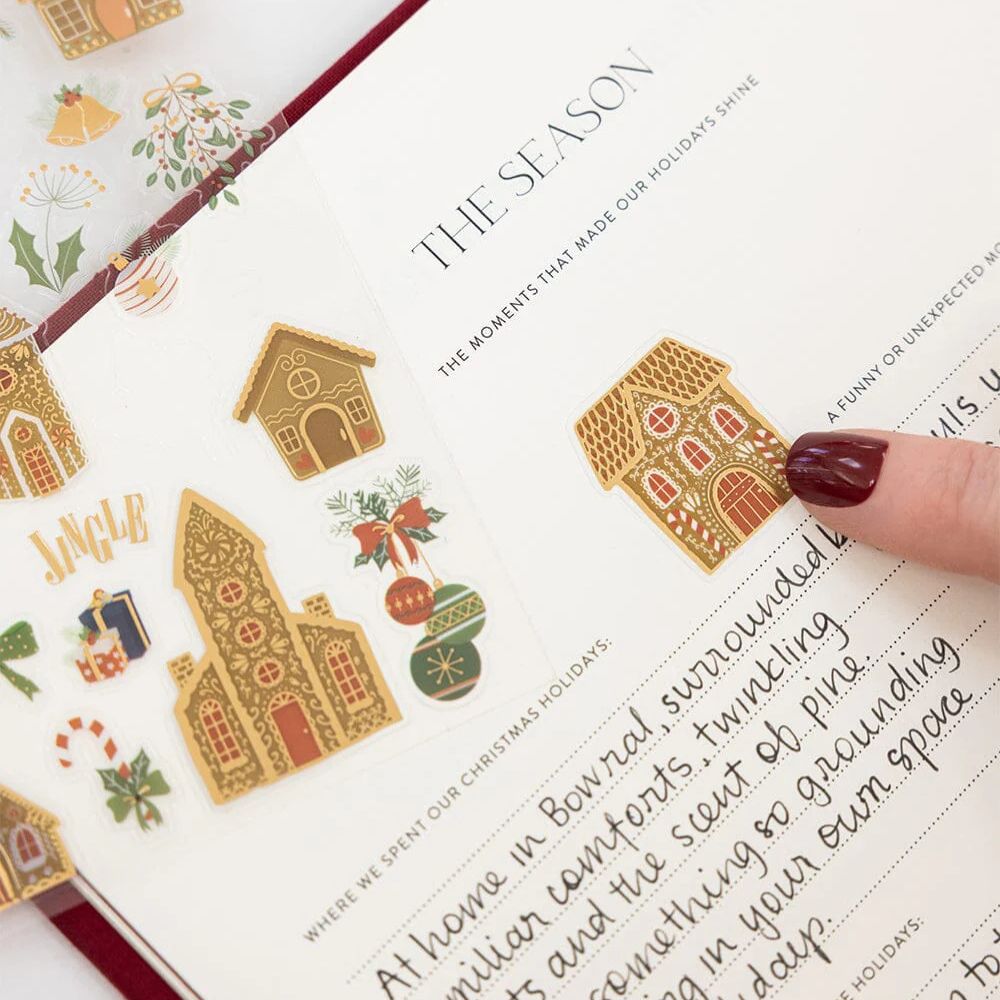 THE SEASON
THE MOMENTS THAT MADE OUR HOLIDAYS SHINE
A FUNNY OR UNEXPECTED
JINGLE
WHERE WE SPENT OUR CHRISTMAS HOLIDAYS:
At home in Bowral, surrounded
comforts, twinkling
and the scent of pine.
something so grounding
in your own space
HOLIDAYS: